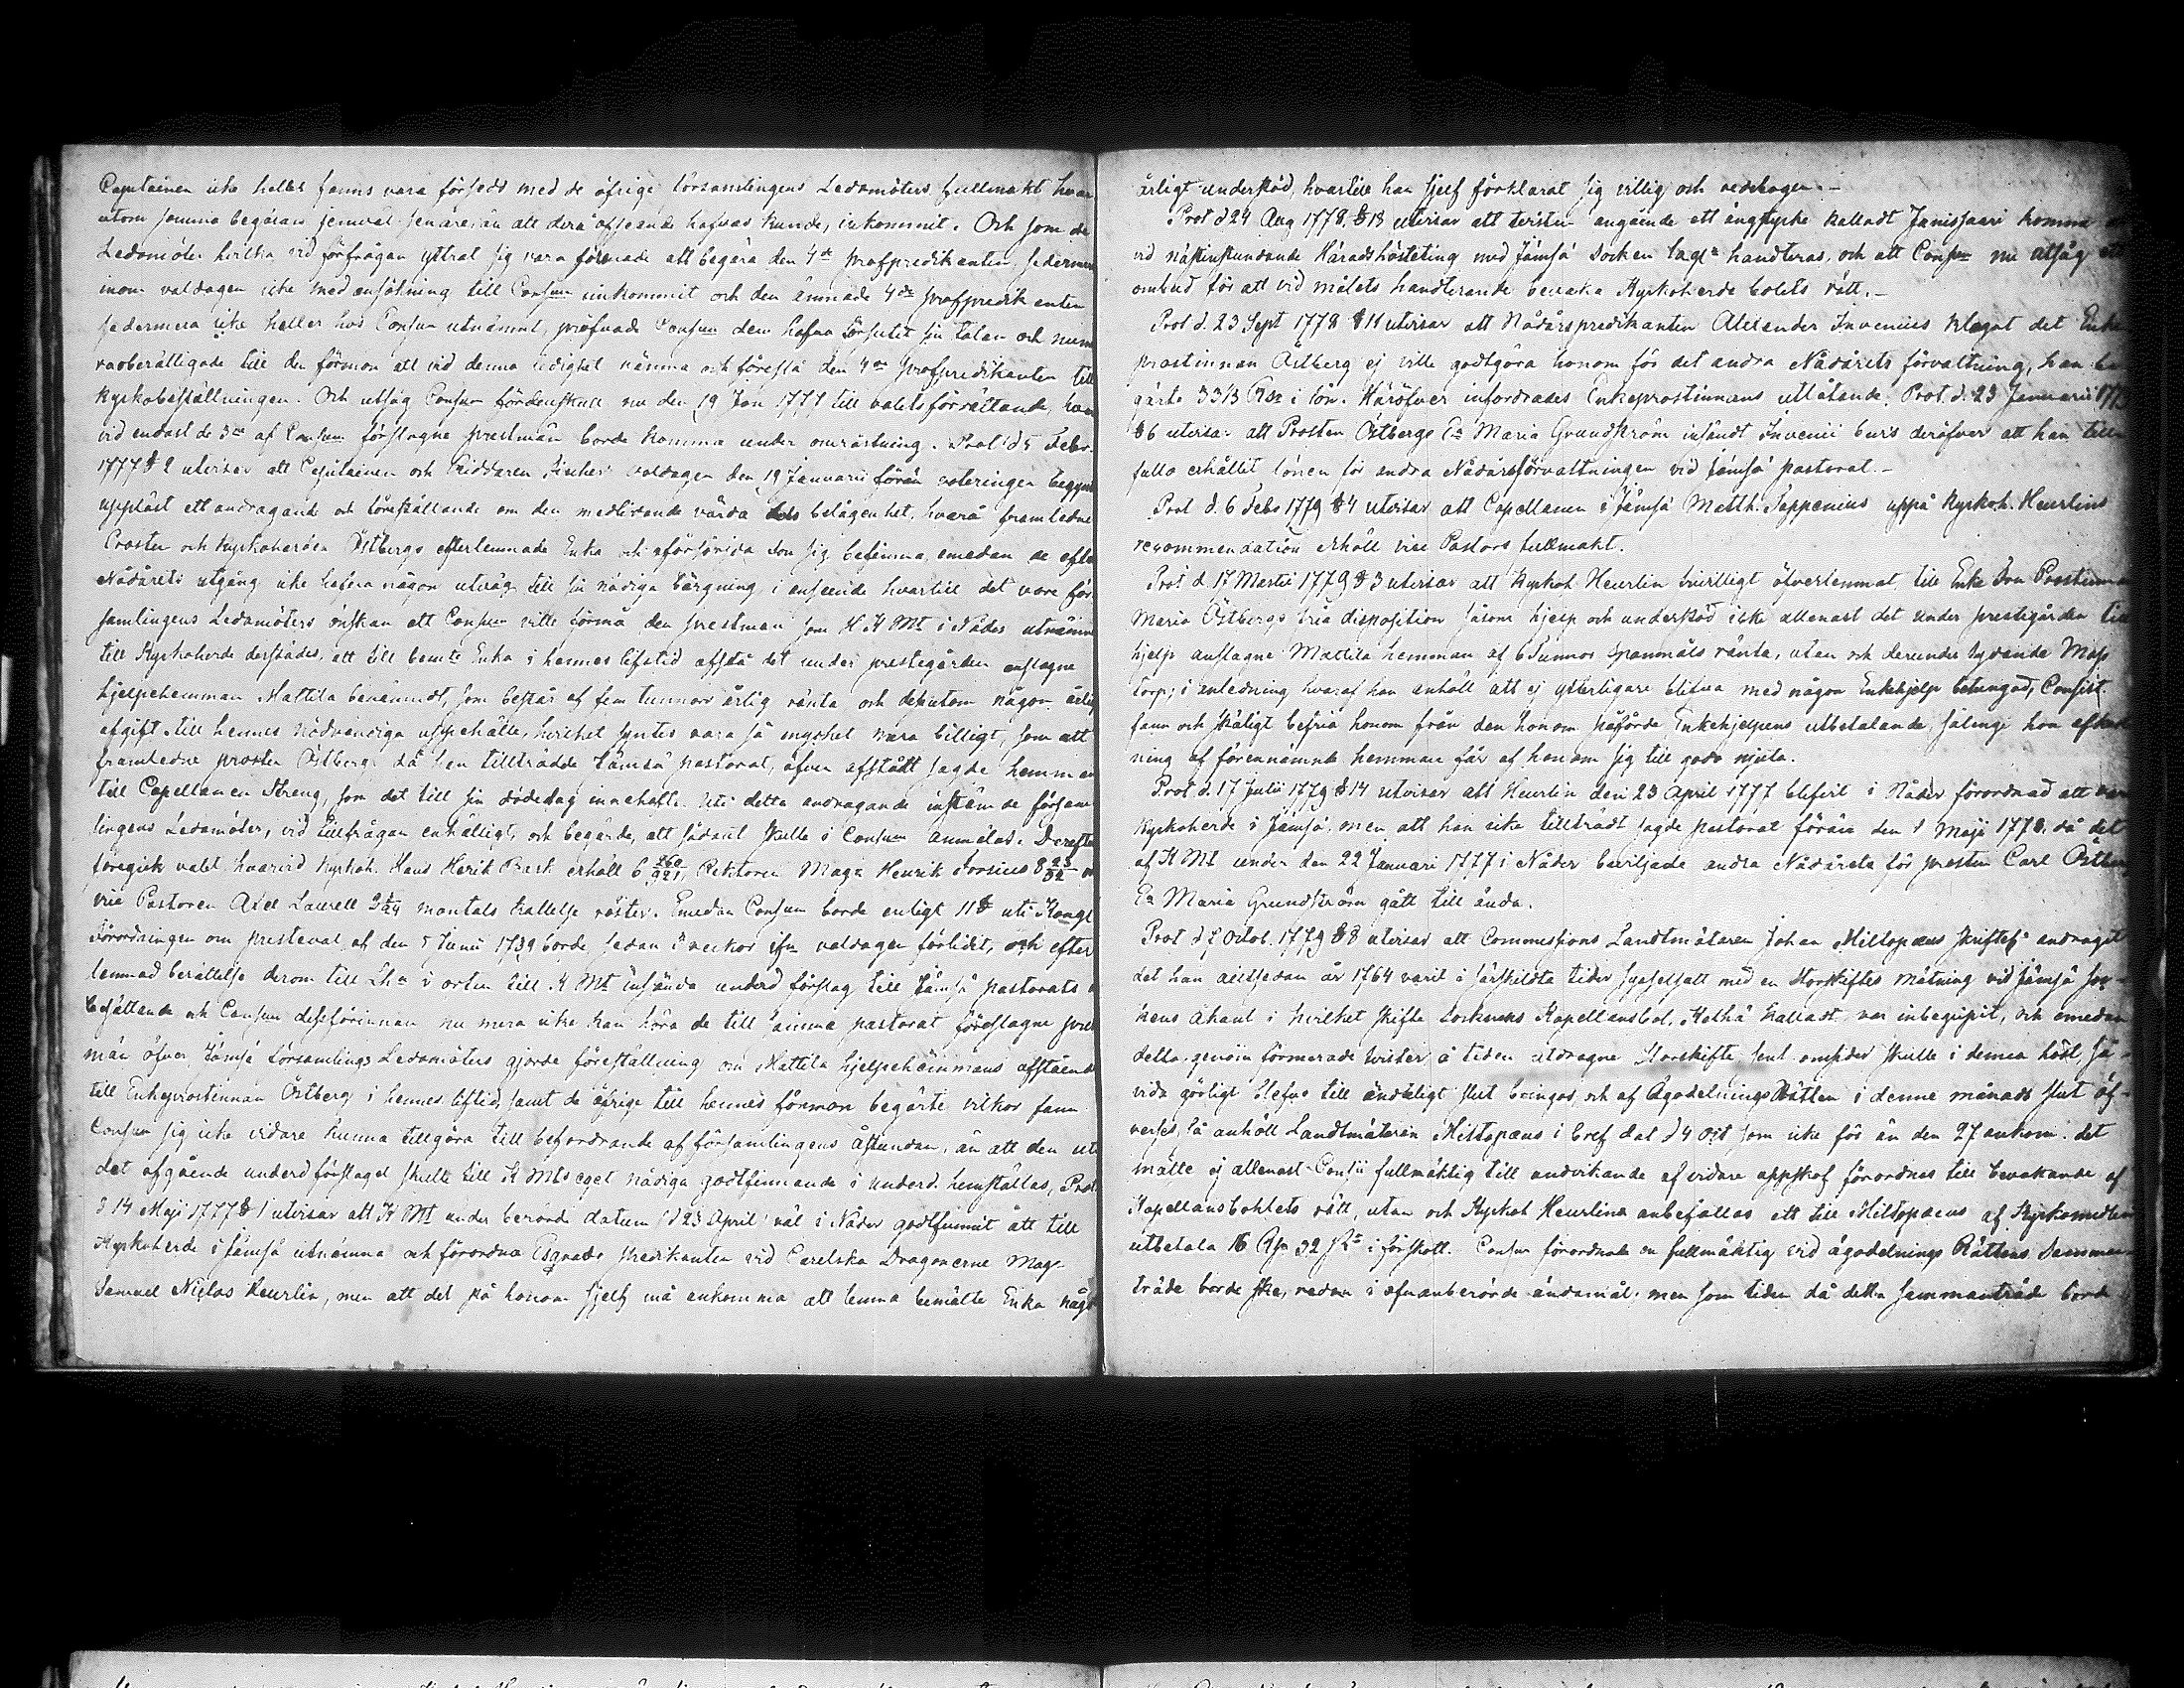 Capitainen icke heller fanns vara försedd med de öfrige församlingens Ledamöters fullmakt hvar
utom samma begäran jemväl senare, än att derå afseende hafvas kunde, inkommit. Och som de
Ledamöter hvilka vid förfrågan yttrat sig vara förenade att begära den 4de profpredikanten, sedermera
inom valdagen icke med ansökning till Consum inkommit och den ämnade 4de profpredikanten
sedermera icke heller hos Consum utnämnt, pröfvade Consum dem hafva försutit sin talan och
vara oberättigade till den förmon att vid denna ledighet nämna och föreslå den 4de profpredikanten till
kyrkobeställningen. Och utsåg Consum fördenskull nu den 19 Jan 1777 till valets förrättande, hvar
vid endast de 3ne af Consum förslagne prestmän borde komma under omröstning. Prot d 5 Febr.
1777 § 2 utvisar att Capitainen och Riddaren Fischer valdagen den 19 Januarii förrän voteringen begynt
uppläst ett andragande och föreställande om den medlidande värda belägenhet, hvarå framledne
Prosten och Kyrkoherden Östbergs efterlemnade Enka och oförsörjda Son sig befinna, emedan de efter
Nådårets utgång icke hafva någon utväg till sin nödiga bärgning, i anseende hvartill det vore för-
samlingens Ledamöters önskan att Consum ville förmå den prestman som K Mt i Nåder utnämner
till Kyrkoherde derstädes, att till bemte Enka i hennes lifstid afstå det under prestegården anslagne
hjelpehemman Mattila benämndt, som består af fem tunnor årlig ränta och dessutom någon årlig
afgift till hennes nödvändiga uppehälle, hvilket syntes vara så mycket mera billigt, som att
framledne prosten Östberg då han tillträdde Jämsä pastorat, äfven afstått sagde hemman
till Capellanen Streng, som det till sin dödedag innehaft. Uti detta andragande instämde försam-
lingens Ledamöter, vid tillfrågan enhälligt, och begärde, att sådant skulle i Consum anmälas. Derefter
föregick valet, hvarvid Kyrkoh. Hans Henrik Bask erhöll 6 260/921, Rektoren Mag: Henrik Forsius 8 23/32
vice Pastoren Axel Laurell 2 mantals kallelse röster. Emedan Consum borde enligt 11 § uti Kongl
Förordningen om presteval af den 5 Junii 1739 borde, sedan veckor ifrn valdagen förlidit, och efter
lemnad berättelse derom till Lhn i orten till K Mt insända underd förslag till Jämsä pastorats
besättande och Consum dessförinnan nu mera icke kan höra de till samma pastorat föreslagne prest
män öfver Jämsä församlings Ledamöters gjorde föreställning om Mattila hjelpehemmans afstående
till Enkeprostinnan Östberg i hennes lifstid, samt de öfrige till hennes förmon begärte vilkor fann
Consum sig icke vidare kunna tillgöra till befordrande af församlingens åstundan, än att den uti
det afgående underd förslaget skulle till K Mts eget nådiga godtfinnande i underd. hemställas, Prot.
d 14 Maji 1777 § 1 utvisar att K Mt under berörde datum (d 23 April) väl i Nåder godtfunnit att till
Kyrkoherde i Jämsä utnämna och förordna Esqvads predikanten vid Carelska Dragonerne Mag:
Samuel Niclas Heurlin, men att det på honom sjelf må ankomma att lemna bemälte Enka någt
årligt understöd, hvartill han sjelf förklarat sig villig och redobogen.—
Prot d 24 Aug 1778 § 13 utvisar att tvisten angående ett ängstycke kalladt Janissaari komma
vid nästinstundande Häradshösteting med Jämsä Socken lagl: handteras, och att Consum nu utsåg ett
ombud för att vid målets handterande bevaka Kyrkoherde bolets rätt.—
Prot d. 23 Sept 1778 § 11 utvisar att Nådårspredikanten Alexander Invenius klagat det Enke
prostinnan Östberg ej ville godtgöra honom för det andra Nådårets förvaltning, han be
gärte 33 1/3 Rdr i lön. Häröfver infordrades Enkeprostinnans utlåtande. Prot. d. 23 Januarii 1779
§ 6 utvisar att Prosten Östbergs Ea Maria Grundström insändt Invenii bevis deröfver att han till
fullo erhållit lönen för andra Nådårsförvaltningen vid Jämsä pastorat.—
Prot d. 6 Febr 1779 § 4 utvisar att Capellanen i Jämsä Matth. Seppenius uppå Kyrkoh. Heurlins
recommendation erhöll vice Pastors fullmakt.
Prot d 17 Martii 1779 § 3 utvisar att Kyrkoh Heurlin frivilligt öfverlemnat till Enke Fru Prostinnan
Maria Östbergs fria disposition såsom hjelp och understöd icke allenast det under prestegården till
hjelp anslagne Mattila hemman af 6 Tunnor Spannmåls ränta, utan och derunder lydande Mäs
torp; i anledning hvaraf han anhöll att ej ytterligare blifva med någon Enkehjelp betungad, Consist.
fann och skäligt befria honom från den honom påförde Enkehjelpens utbetalande, sålänge hon afkast
ning af förennämnde hemman får af honom sig till godo njuta.
Prot d. 17 Julii 1779 § 14 utvisar att Heurlin den 23 April 1777 blifvit i Nåder förordnad att vara
Kyrkoherde i Jämsä, men att han icke tillträdt sagde pastorat förrän den 1 Maji 1778, då det
af K Mt under den 22 Januari 1777 i Nåder beviljade andra Nådåreta för prosten Carl Östbergs
Ea Maria Grundström gått till ända.
Prot d 7 Octob. 1779 § 8 utvisar att Commissions Landtmätaren Johan Miltopæus skriftel: andragit
det han alltsedan år 1764 varit i särskildta tider sysselsatt med en storskiftes mätning vid Jämsä soc-
kens åkant i hvilket skifte sockenens Kapellansbol, Kalhä kalladt, var inbegripit, och emedan
detta, genom förmerade tvister å tiden utdragne Storskifte sent omsider skulle i denna höst, så-
vida görligt blefve till ändteligt slut bringas, och af ÄgodelningsRätten i denne månads slut öf-
verses, så anhöll Landtmätaren Miltopæus i bref dat d 4 Oct som icke för än den 27 ankom, det
målte ej allenast Consii fullmäktig till undvikande af vidare uppskof förordnas till bevakande af
Kapellansbohlets rätt, utan och Kyrkoh Heurlin anbefallas att till Miltopæus af Kyrkomedlen
utbetala 16 Rdr 32 sk: i förskott. Consum förordnade en fullmäktig vid ägodelnings Rättens Samman-
träde borde ske, redan i ofvanberörde ändamål; men som tiden då detta sammanträde borde